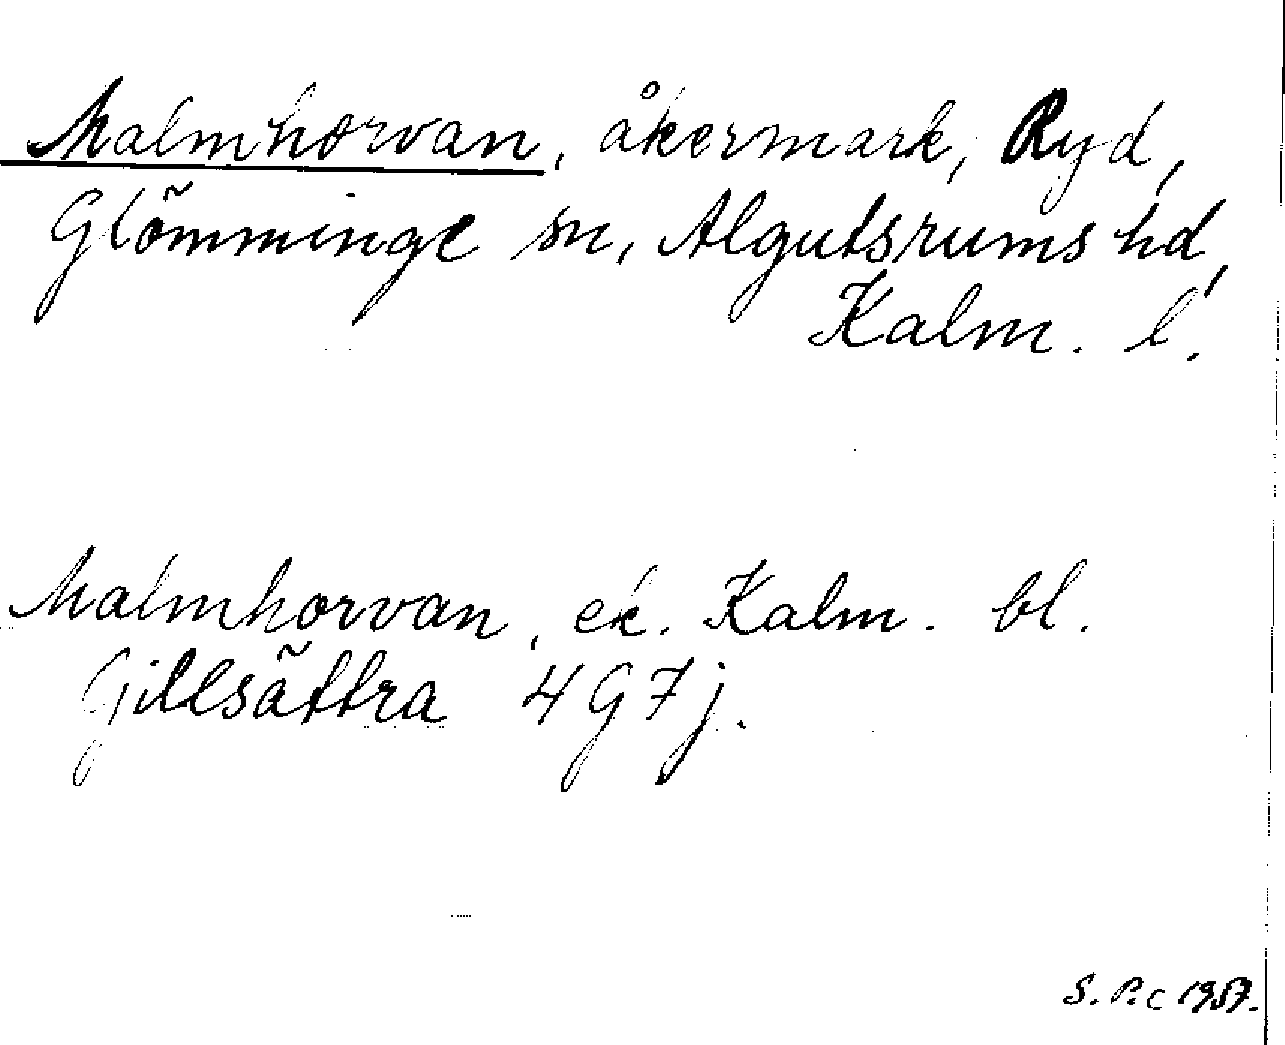 Malmhorvan, åkermark, Ryd,
Glömminge sn, Algutsrums hd,
Kalm. l.
Malmhorvan, ek. Kalm. bl.
Gillsättra 4 G 7 j.
S. P:c 1957.